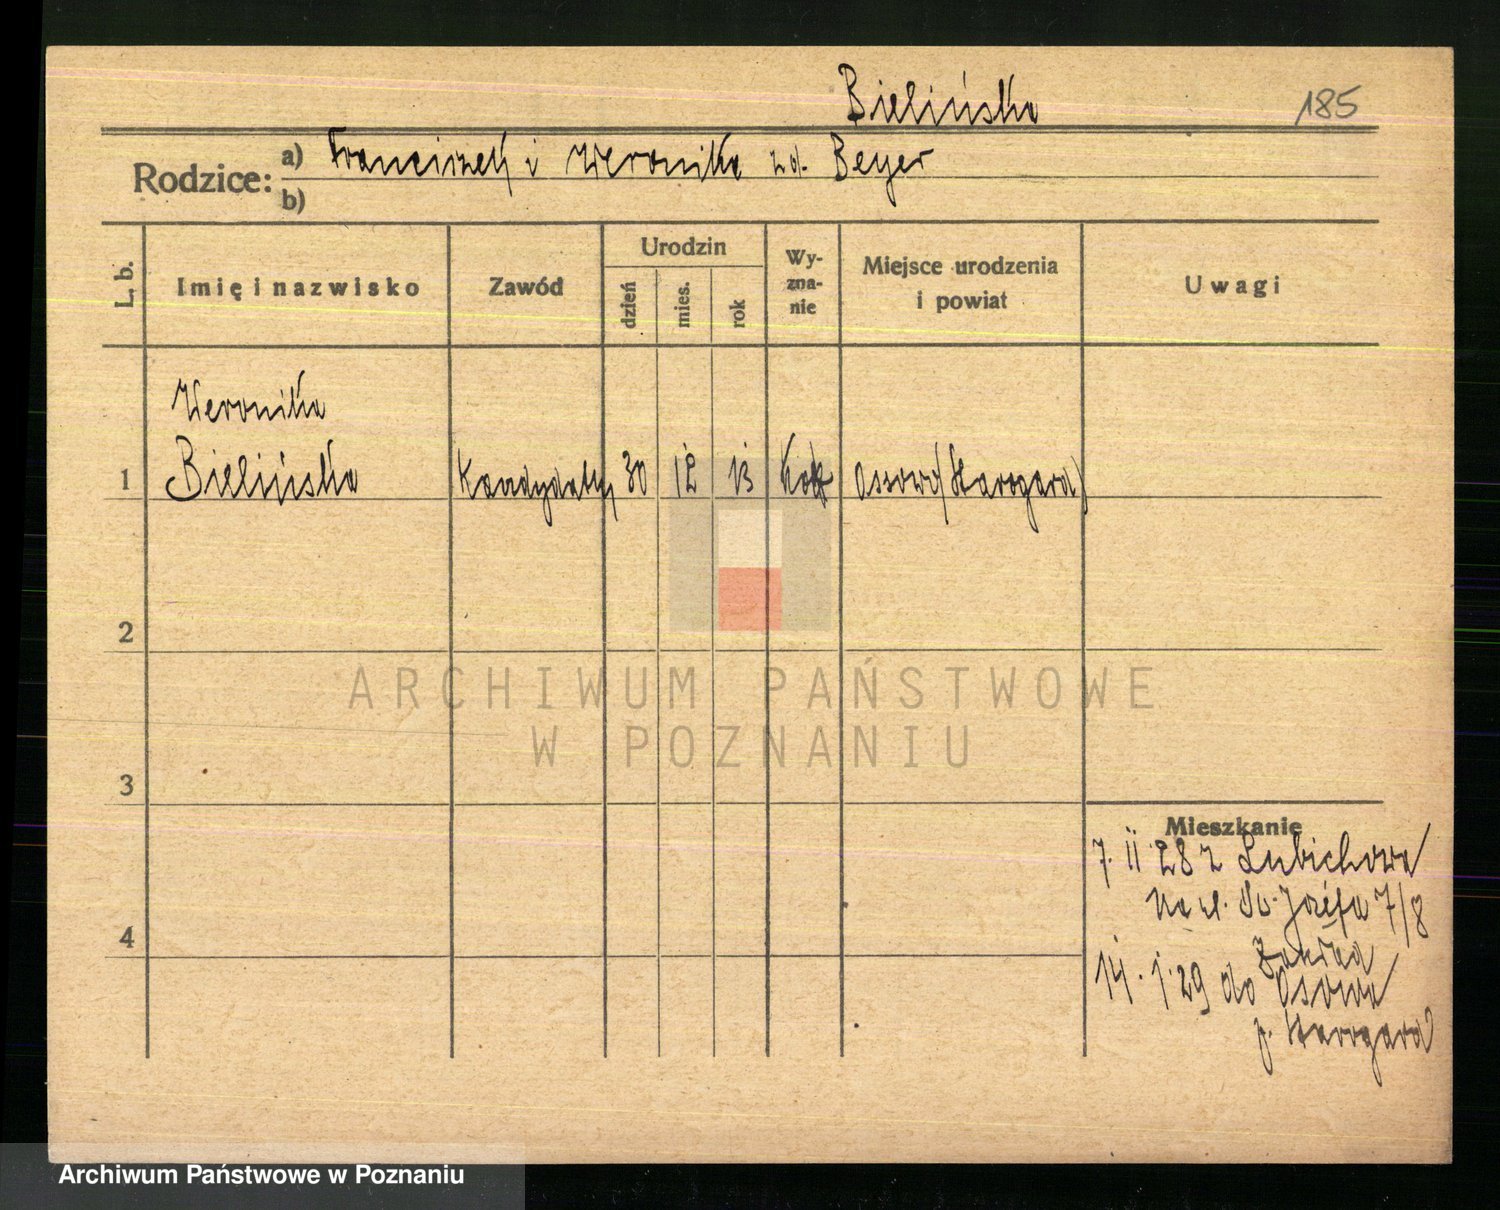 Bielińska
185
Rodzice: a) Franciszek i Weronika zd. Beyer
b)
L. b. Imię i nazwisko Zawód Urodzin dzień mies. rok Wy-zna-nie Miejsce urodzenia i powiat Uwagi
Weronika
1 Bielińska Kandydatk 30 12 13 kat Ossowo (Starogard)
2
ARCHIWUM PAŃSTWOWE
W POZNANIU
3
Mieszkanie
7. II 28 z Lubichowa
na ul. Św. Józefa 7/8
4
14. 1. 29 do Osowa
p. Starogard
Archiwum Państwowe w Poznaniu